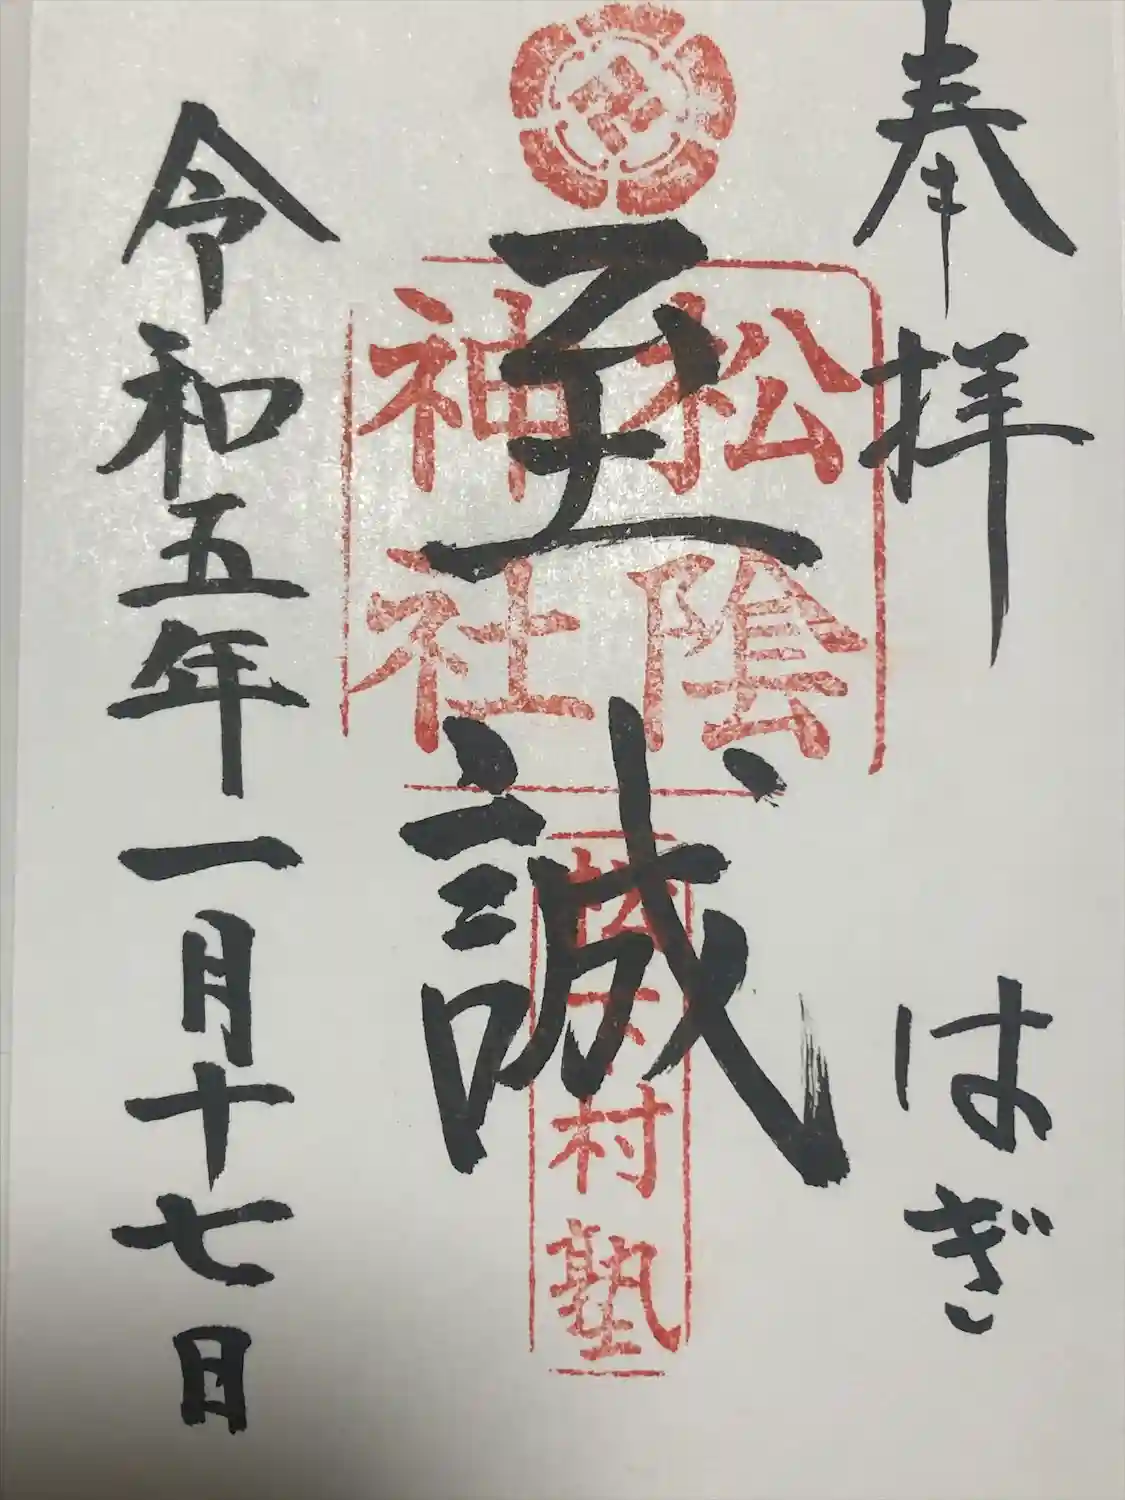 奉拝 はぎ
至誠
松陰神社
松下村塾
令和五年一月十七日